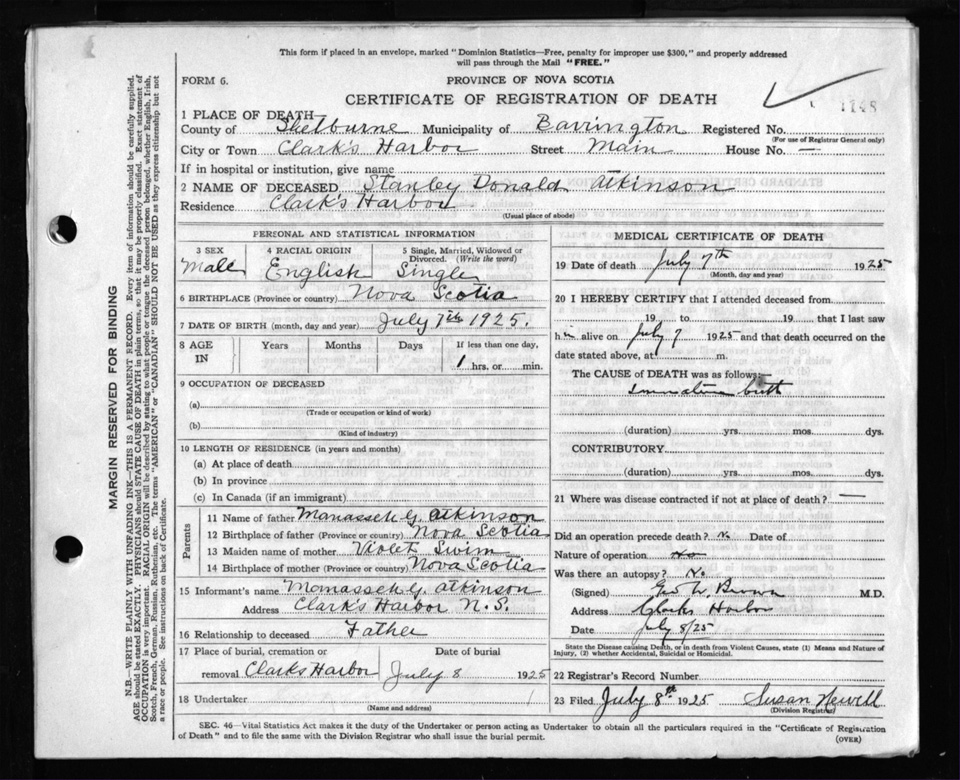 This form if placed in an envelope, marked "Dominion Statistics—Free, penalty for improper use $300," and properly addressed
will pass through the Mail "FREE."
FORM 6.
PROVINCE OF NOVA SCOTIA
CERTIFICATE OF REGISTRATION OF DEATH
1 PLACE OF DEATH—
County of Shelburne Municipality of Barrington Registered No.
(For use of Registrar General only)
City or Town Clark's Harbor Street Main House No. —
If in hospital or institution, give name
2 NAME OF DECEASED Stanley Donald Atkinson
Residence Clark's Harbor
(Usual place of abode)
PERSONAL AND STATISTICAL INFORMATION
3 SEX Male
4 RACIAL ORIGIN English
5 Single, Married, Widowed or Divorced. (Write the word) Single
6 BIRTHPLACE (Province or country) Nova Scotia
7 DATE OF BIRTH (month, day and year) July 7th 1925.
8 AGE IN Years Months Days If less than one day, 1 hrs. or min.
9 OCCUPATION OF DECEASED
(a)
(Trade or occupation or kind of work)
(b)
(Kind of industry)
10 LENGTH OF RESIDENCE (in years and months)
(a) At place of death
(b) In province
(c) In Canada (if an immigrant)
Parents
11 Name of father Manasseh G. Atkinson
12 Birthplace of father (Province or country) Nova Scotia
13 Maiden name of mother Violet Swim
14 Birthplace of mother (Province or country) Nova Scotia
15 Informant's name Manasseh G. Atkinson
Address Clark's Harbor N.S.
16 Relationship to deceased Father
17 Place of burial, cremation or removal Clarks Harbor
Date of burial July 8 1925
18 Undertaker
(Name and address)
MEDICAL CERTIFICATE OF DEATH
19 Date of death July 7th 1925
(Month, day and year)
20 I HEREBY CERTIFY that I attended deceased from
19 to 19 that I last saw
h im alive on July 7 1925 and that death occurred on the
date stated above, at m.
The CAUSE of DEATH was as follows:—
Immature birth
(duration) yrs. mos. dys.
CONTRIBUTORY
(duration) yrs. mos. dys.
21 Where was disease contracted if not at place of death? —
Did an operation precede death? No Date of
Nature of operation
Was there an autopsy? No
(Signed) Geo W. Brown M.D.
Address Clarks Harbor
Date July 8/25
State the Disease causing Death, or in death from Violent Causes, state (1) Means and Nature of
Injury, (2) whether Accidental, Suicidal or Homicidal.
22 Registrar's Record Number
23 Filed July 8th 1925 Susan Newell
(Division Registrar)
SEC. 46—Vital Statistics Act makes it the duty of the Undertaker or person acting as Undertaker to obtain all the particulars required in the "Certificate of Registration
of Death" and to file the same with the Division Registrar who shall issue the burial permit.
(OVER)
MARGIN RESERVED FOR BINDING
N.B.—WRITE PLAINLY WITH UNFADING INK—THIS IS A PERMANENT RECORD. Every item of information should be carefully supplied.
AGE should be stated EXACTLY. PHYSICIANS should STATE CAUSE OF DEATH in plain terms, so that it may be properly classified. Exact statement of
OCCUPATION is very important. RACIAL ORIGIN will be described by stating to what people or tongue the deceased person belonged, whether English, Irish,
Scotch, French, German, Russian, Ruthenian, etc. The terms "AMERICAN" or "CANADIAN" SHOULD NOT BE USED as they express citizenship but not
a race or people. See instructions on back of Certificate.